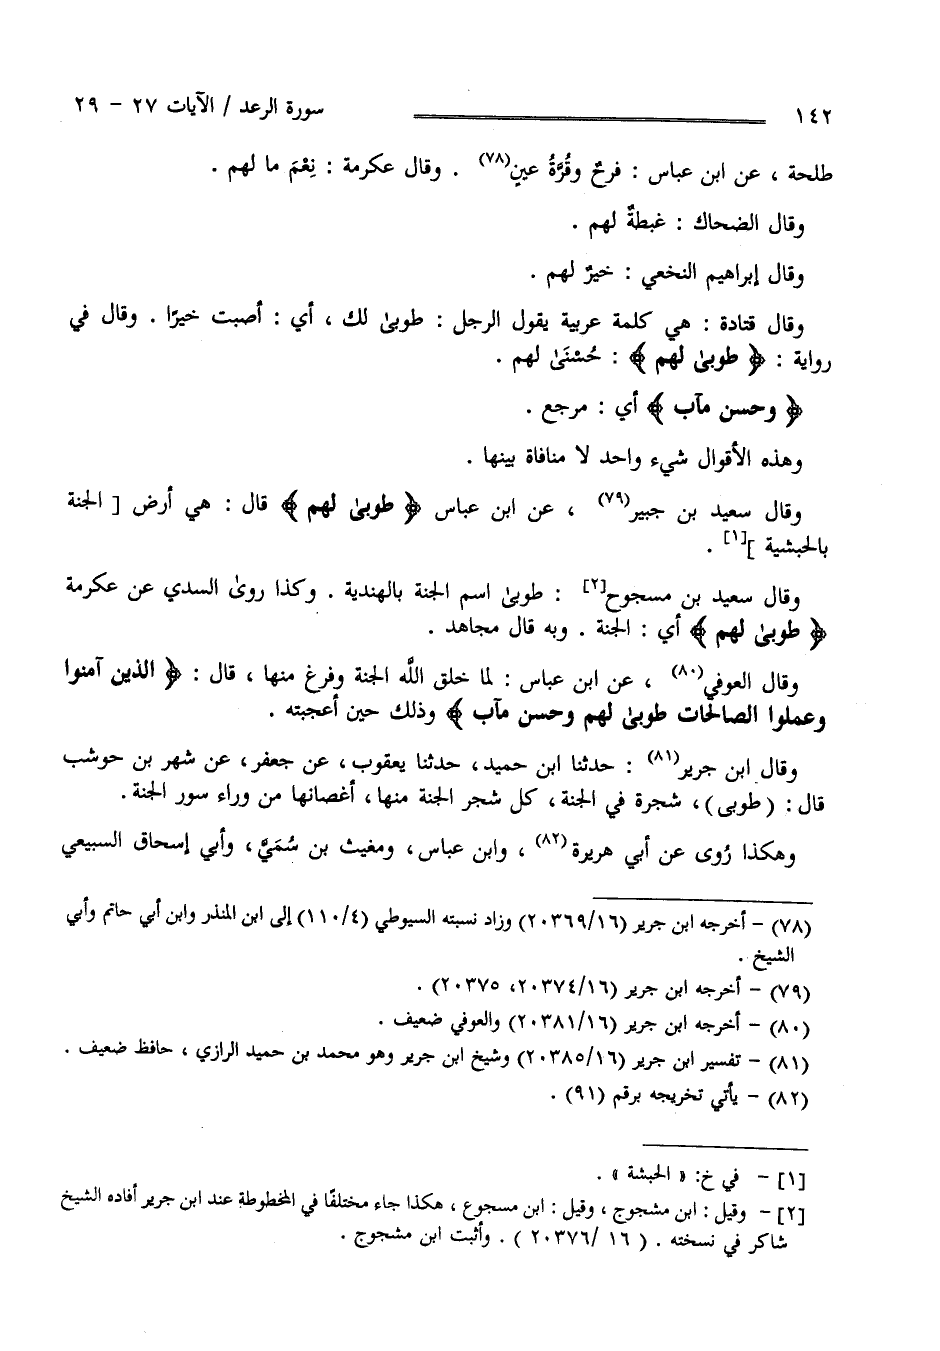 ١٤٢ سورة الرعد / الآيات ٢٧ - ٢٩
طلحة ، عن ابن عباس : فرحٌ وقُرَّةُ عينٍ(٧٨) . وقال عكرمة : نِعْمَ ما لهم .
وقال الضحاك : غبطةٌ لهم .
وقال إبراهيم النخعي : خيرٌ لهم .
وقال قتادة : هي كلمة عربية يقول الرجل : طوبىٰ لك ، أي : أصبت خيرًا . وقال في
رواية : ﴿ طوبىٰ لهم ﴾ : حُسْنَىٰ لهم .
﴿ وحسن مآب ﴾ أي : مرجع .
وهذه الأقوال شيء واحد لا منافاة بينها .
وقال سعيد بن جبير(٧٩) ، عن ابن عباس ﴿ طوبىٰ لهم ﴾ قال : هي أرض [ الجنة
بالحبشية ][١] .
وقال سعيد بن مسجوح[٢] : طوبىٰ اسم الجنة بالهندية . وكذا روىٰ السدي عن عكرمة
﴿ طوبىٰ لهم ﴾ أي : الجنة . وبه قال مجاهد .
وقال العوفي(٨٠) ، عن ابن عباس : لما خلق اللَّه الجنة وفرغ منها ، قال : ﴿ الذين آمنوا
وعملوا الصالحات طوبىٰ لهم وحسن مآب ﴾ وذلك حين أعجبته .
وقال ابن جرير(٨١) : حدثنا ابن حميد، حدثنا يعقوب، عن جعفر، عن شهر بن حوشب
قال : (طوبى)، شجرة في الجنة، كل شجر الجنة منها، أغصانها من وراء سور الجنة.
وهكذا رُوى عن أبي هريرة(٨٢) ، وابن عباس، ومغيث بن سُمَيَّ، وأبي إسحاق السبيعي
(٧٨) - أخرجه ابن جرير (٢٠٣٦٩/١٦) وزاد نسبته السيوطي (١١٠/٤) إلى ابن المنذر وابن أبي حاتم وأبي
الشيخ .
(٧٩) - أخرجه ابن جرير (٢٠٣٧٤/١٦، ٢٠٣٧٥) .
(٨٠) - أخرجه ابن جرير (٢٠٣٨١/١٦) والعوفي ضعيف .
(٨١) - تفسير ابن جرير (٢٠٣٨٥/١٦) وشيخ ابن جرير وهو محمد بن حميد الرازي ، حافظ ضعيف .
(٨٢) - يأتي تخريجه برقم (٩١) .
[١] - في خ: « الحبشة » .
[٢] - وقيل : ابن مشجوج ، وقيل : ابن مسجوع ، هكذا جاء مختلفًا في المخطوطة عند ابن جرير أفاده الشيخ
شاكر في نسخته . ( ١٦ /٢٠٣٧٦ ) . وأثبت ابن مشجوج .